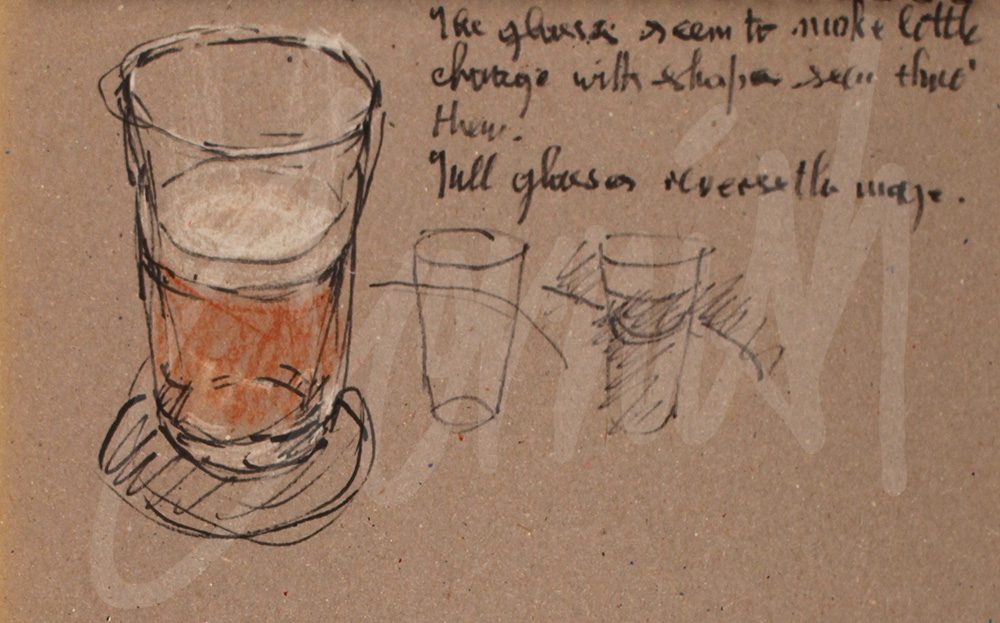 The glasses seem to make little
change with shapes seen thro'
them.
Full glasses reverse the image.